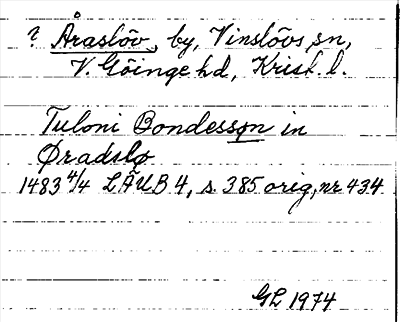 ? Åraslöv, by, Vinslövs sn,
V. Göinge hd, Krist. l.
Tuloni Bondesson in
Øradslø
1483 4/4 LÄUB 4, s. 385 orig, nr 434
GL 1974